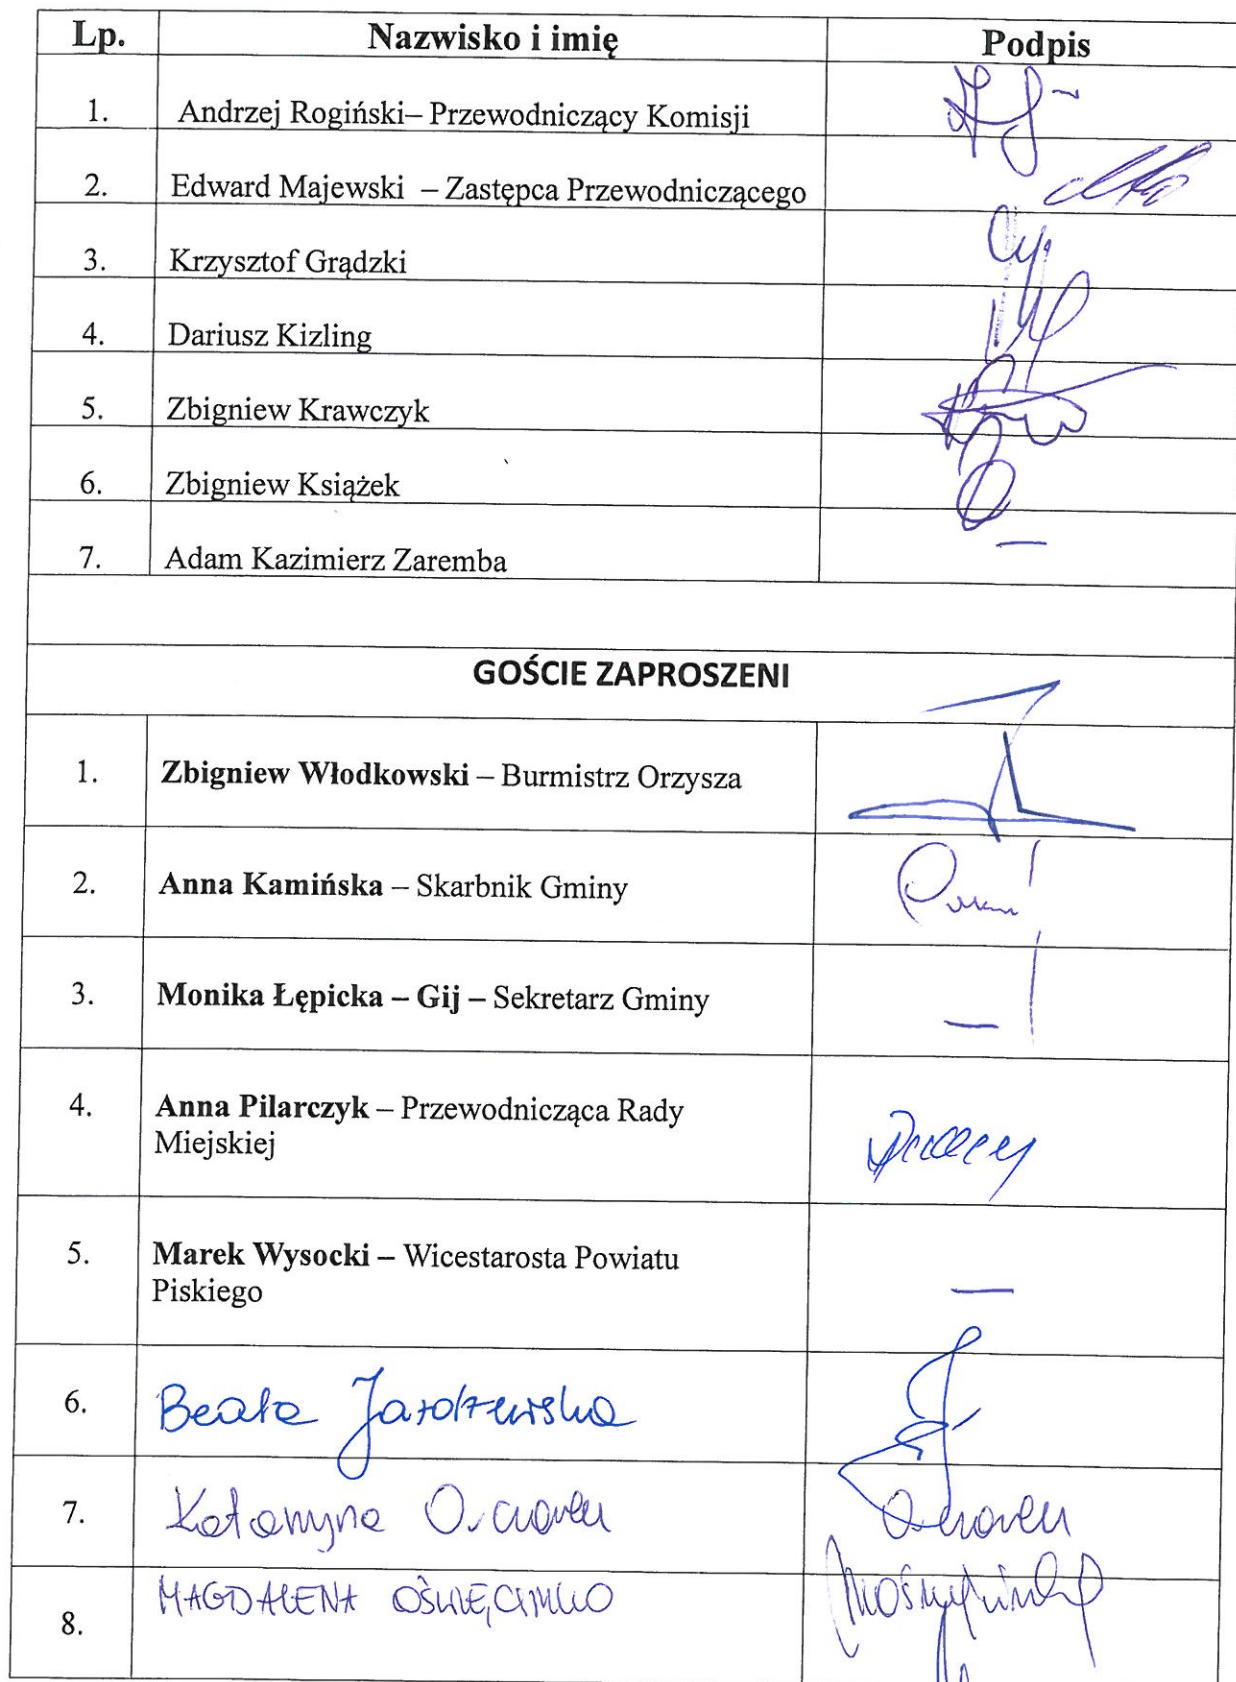 Lp. Nazwisko i imię Podpis
1. Andrzej Rogiński– Przewodniczący Komisji
2. Edward Majewski – Zastępca Przewodniczącego
3. Krzysztof Grądzki
4. Dariusz Kizling
5. Zbigniew Krawczyk
6. Zbigniew Książek
7. Adam Kazimierz Zaremba —
GOŚCIE ZAPROSZENI
1. Zbigniew Włodkowski – Burmistrz Orzysza
2. Anna Kamińska – Skarbnik Gminy
3. Monika Łępicka – Gij – Sekretarz Gminy —
4. Anna Pilarczyk – Przewodnicząca Rady
Miejskiej
5. Marek Wysocki – Wicestarosta Powiatu
Piskiego —
6. Beata
7. Katarzyna
8. MAGDALENA